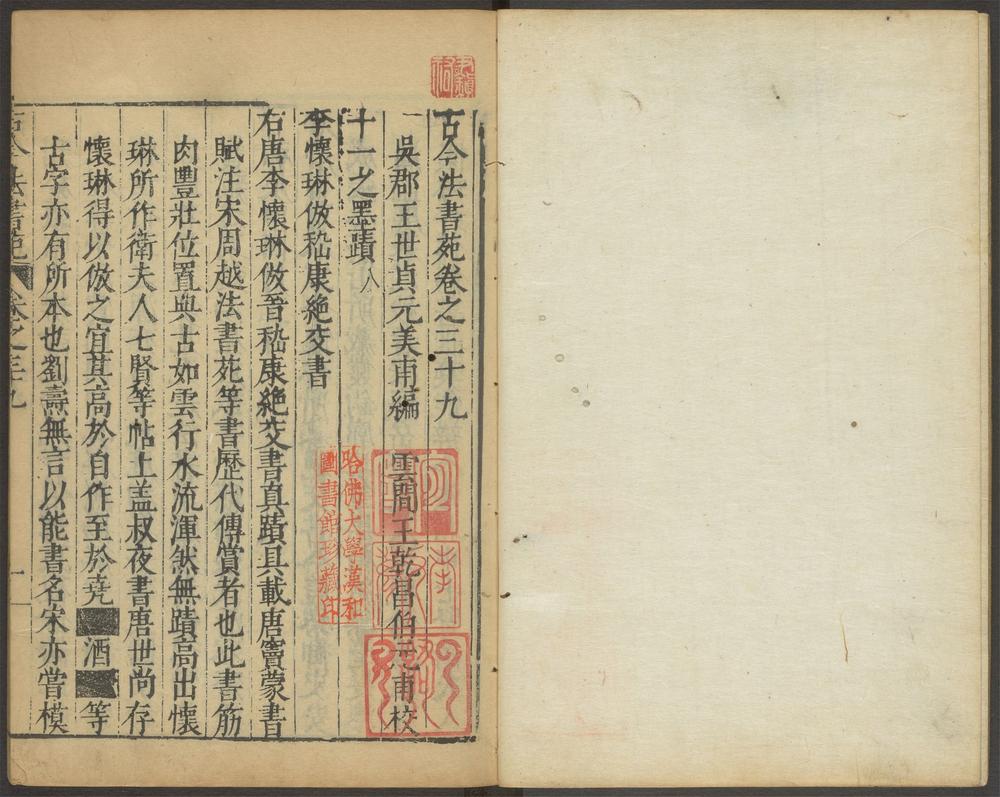 古今法書苑卷之三十九
吳郡王世貞元美甫編 雲間王乾昌伯元甫校
十一之墨蹟八
李懷琳倣嵇康絕交書
右唐李懷琳倣晉嵇康絕交書真蹟具載唐竇蒙書
賦注宋周越法書苑等書歷代傳賞者也此書筋
肉豐壯位置與古如雲行水流渾然無蹟高出懷
琳所作衛夫人七賢等帖上盖叔夜書唐世尚存
懷琳得以倣之宜其高於自作至於堯酒等
古字亦有所本也劉壽無言以能書名宋亦嘗模
古今法書苑 卷之三十九 一
哈佛大學漢和
圖書館珍藏印